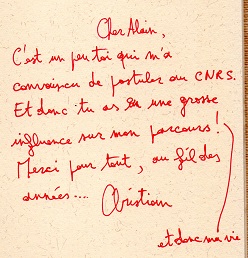 Cher Alain,
C'est un peu toi qui m'a
convaincu de postuler au CNRS.
Et donc tu as eu une grosse
influence sur mon parcours !
Merci pour tout, au fil des
années....
Christian
et donc ma vie